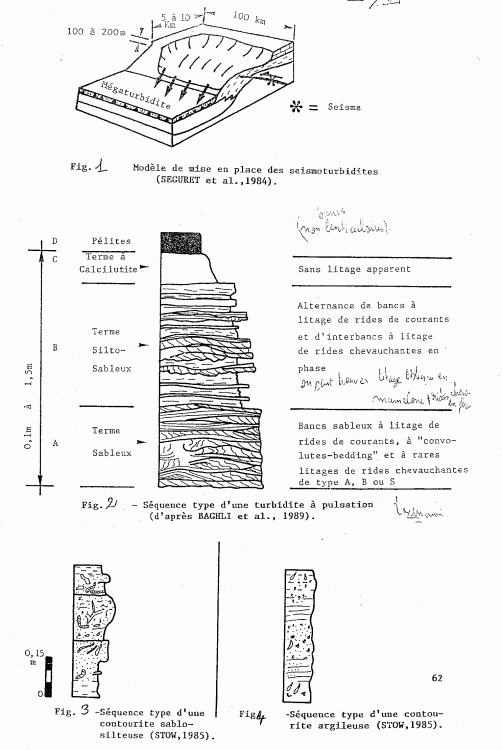 5 à 10 Km
100 km
100 à 200m
Mégaturbidite
= Seisme
Fig. 1 Modèle de mise en place des seismoturbidites
(SEGURET et al.,1984).
bancs
(non lenticulaires)
D Pélites
C Terme à
Calcilutite
Sans litage apparent
B
Terme
Silto-
Sableux
Alternance de bancs à
litage de rides de courants
et d'interbancs à litage
de rides chevauchantes en
phase
on peut trouver litage en
0,1m à 1,5m
A
Terme
Sableux
Bancs sableux à litage de
rides de courants, à "convo-
lutes-bedding" et à rares
litages de rides chevauchantes
de type A, B ou S
Fig. 2 - Séquence type d'une turbidite à pulsation
(d'après BAGHLI et al., 1989).
0,15
m
0
62
Fig. 3 -Séquence type d'une
contourite sablo-
silteuse (STOW,1985).
Fig 4 -Séquence type d'une contou-
rite argileuse (STOW,1985).